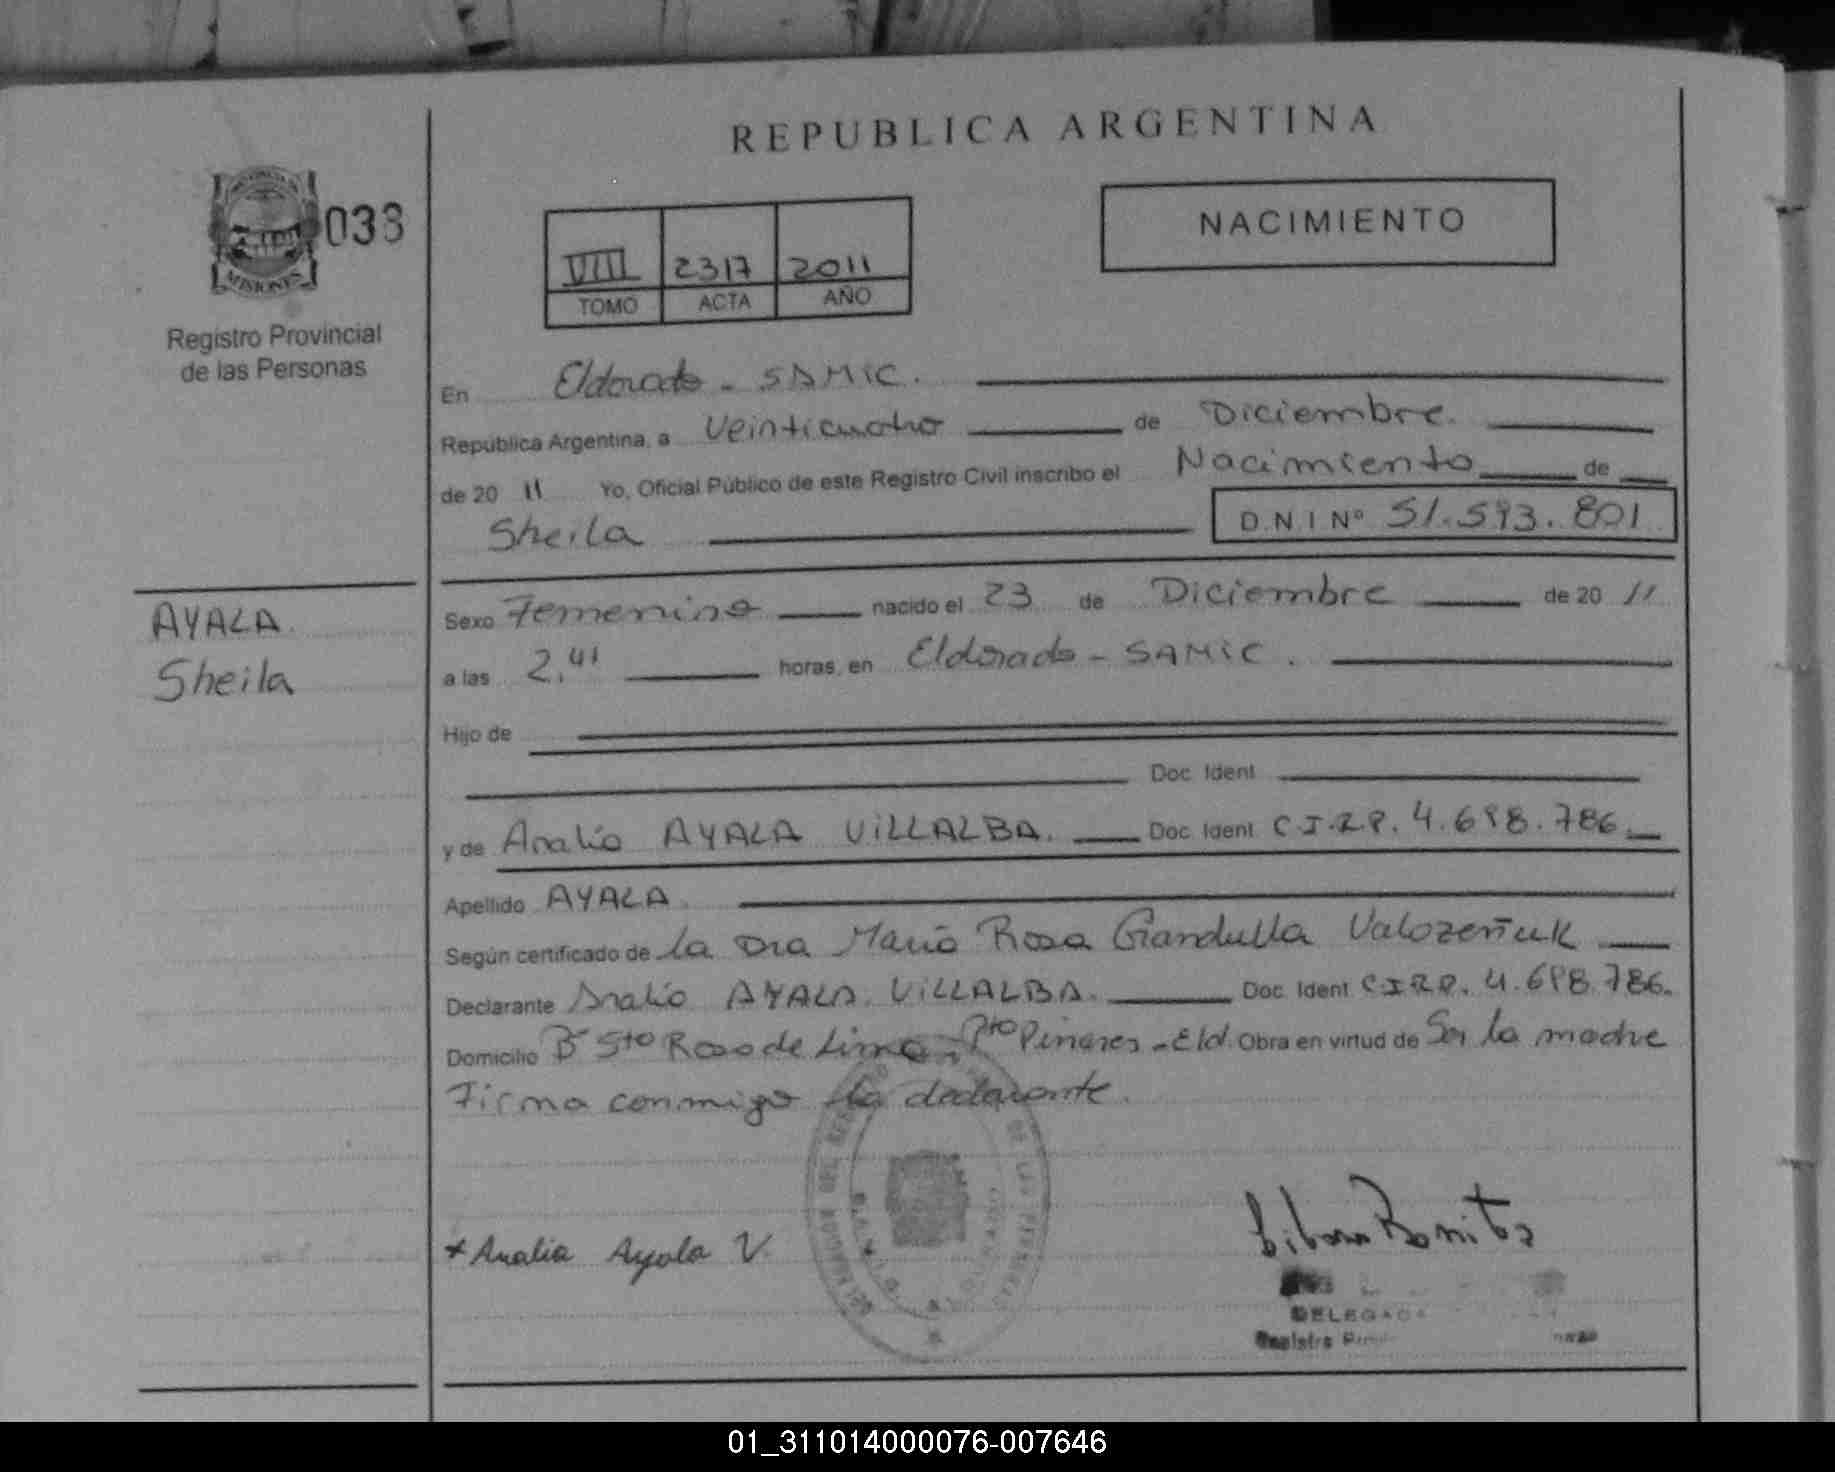 REPUBLICA ARGENTINA
NACIMIENTO
MISIONES
038
Registro Provincial
de las Personas
VIII 2317 2011
TOMO ACTA AÑO
En Eldorado - SAMIC.
República Argentina, a Veinticuatro de Diciembre.
de 20 11 Yo, Oficial Público de este Registro Civil inscribo el Nacimiento de
Sheila D.N.I Nº 51.593.801
AYALA
Sheila
Sexo Femenino nacido el 23 de Diciembre de 20 11
a las 2,41 horas, en Eldorado - SAMIC.
Hijo de
Doc. Ident.
y de Analia AYALA VILLALBA. Doc. Ident. C.I.R.P. 4.698.786.
Apellido AYALA.
Según certificado de la Dra Maria Rosa Giandulla
Declarante Analia AYALA VILLALBA. Doc. Ident. C.I.R.P. 4.698.786.
Domicilio Bº Sta Rosa de Lima - Pto Pinares - Eld. Obra en virtud de Ser la madre
Firma conmigo la declarante.
* Analia Ayala V.
DELEGADA
Registro
01_311014000076-007646